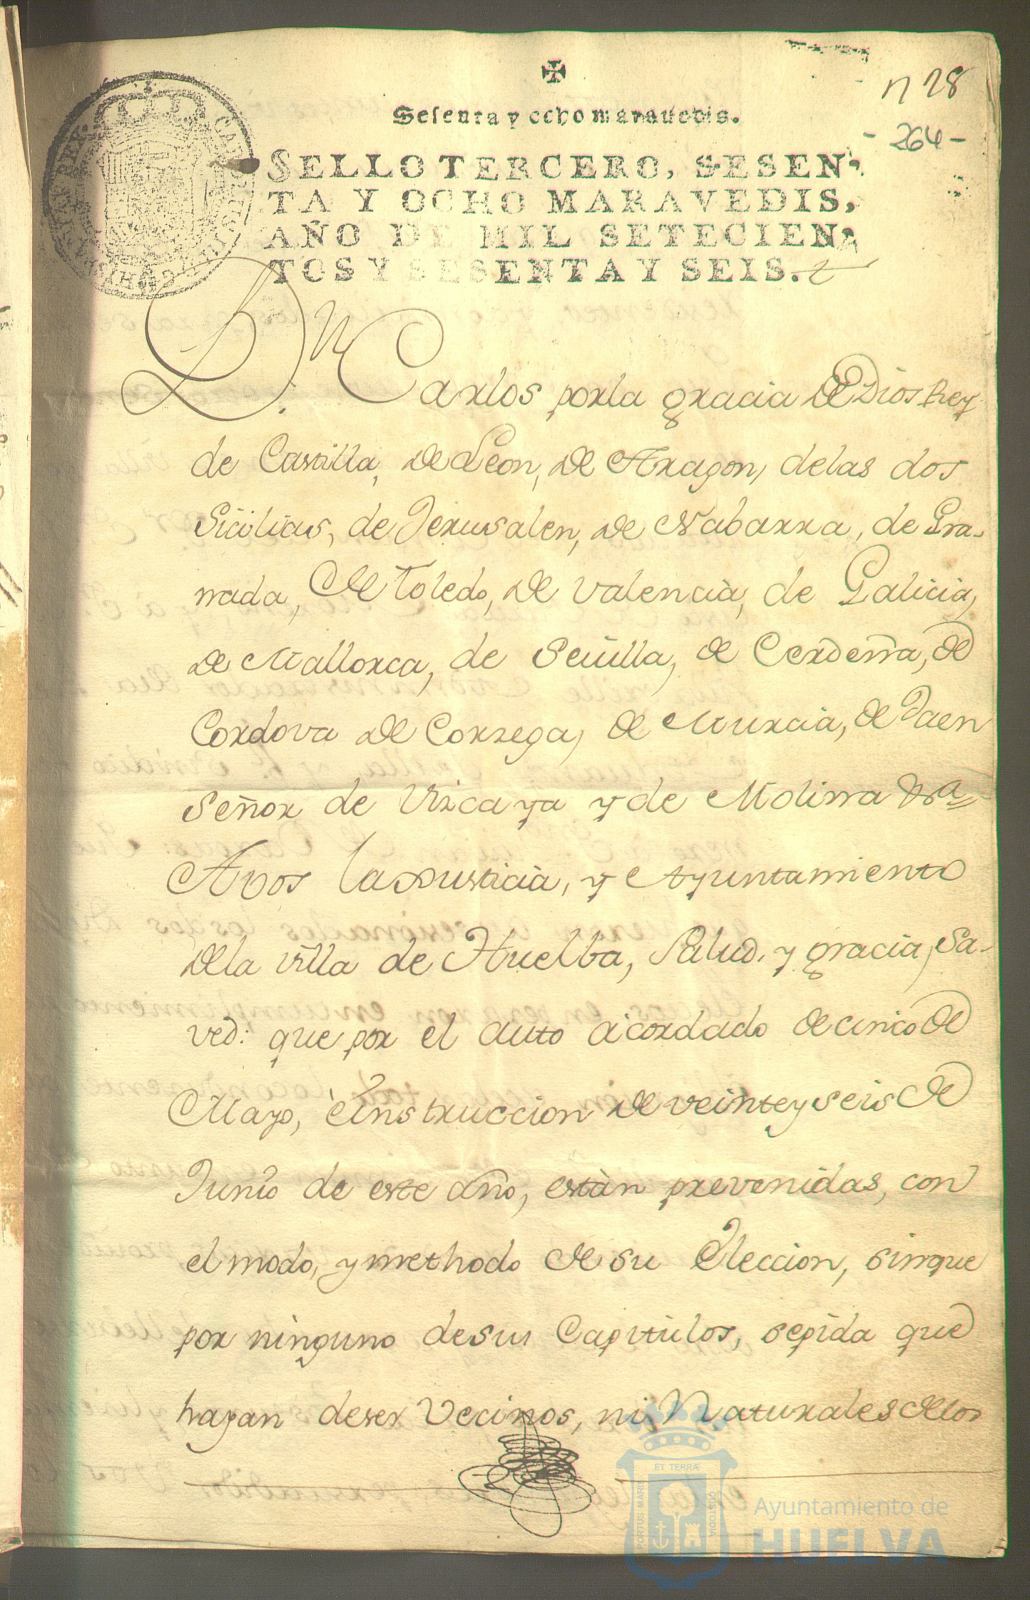 n 28
- 264 -
Sesenta y ocho maravedis.
SELLO TERCERO, SESEN-
TA Y OCHO MARAVEDIS,
AÑO DE MIL SETECIEN-
TOS Y SESENTA Y SEIS.
Dn Carlos por la gracia de Dios Rey
de Castilla, de Leon, de Aragon, delas dos
Sicilias, de Jerusalen, de Nabarra, de Gra-
nada, de Toledo, de Valencia, de Galicia,
de Mallorca, de Sevilla, de Cerdeña, de
Cordova de Corzega, de Murcia, de Jaen
Señor de Vizcaya y de Molina &ra
A vos la Justicia, y Ayuntamiento
dela villa de Huelba, Salud, y gracia, Sa-
ved: que por el auto acordado de cinco de
Mayo, è Instruccion de veinte y seis de
Junio de este año, estàn prevenidas, con
el modo, y methodo de su Eleccion, sin que
por ninguno de sus Capitulos, se pida que
hayan de ser Vecinos, ni Naturales de los
PORTUS MARIS
ET TERRÆ
CUSTODIA
Ayuntamiento de
HUELVA